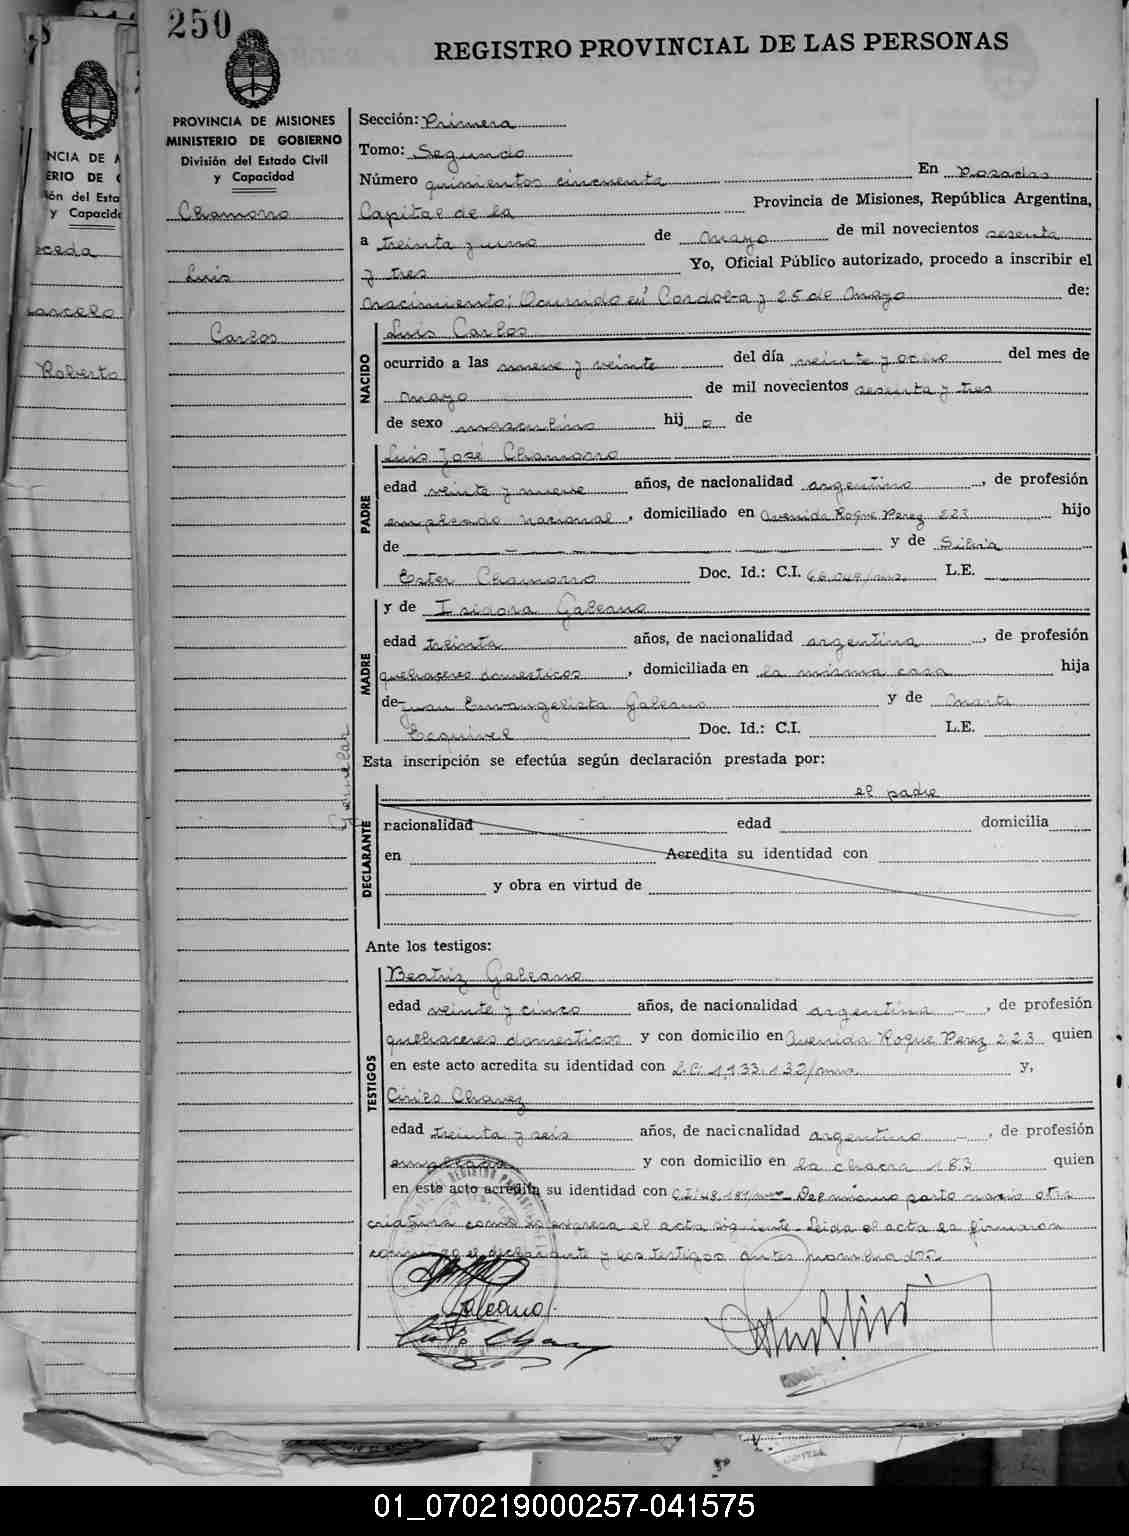 250
REGISTRO PROVINCIAL DE LAS PERSONAS
PROVINCIA DE MISIONES
MINISTERIO DE GOBIERNO
División del Estado Civil
y Capacidad
Chamorro
Luis
Carlos
Gemelar
NCIA DE
ERIO DE
ón del Esta
y Capacida
oceda
arcelo
Roberto
Sección: Primera
Tomo: Segundo
Número quinientos cincuenta En Posadas
Capital de la Provincia de Misiones, República Argentina,
a treinta y uno de mayo de mil novecientos sesenta
y tres Yo, Oficial Público autorizado, procedo a inscribir el
nacimiento; Ocurrido en Cordoba y 25 de Mayo de:
NACIDO
Luis Carlos
ocurrido a las nueve y veinte del día veinte y ocho del mes de
mayo de mil novecientos sesenta y tres
de sexo masculino hijo de
PADRE
Luis José Chamorro
edad veinte y nueve años, de nacionalidad argentino, de profesión
empleado nacional, domiciliado en Avenida Roque Perez 223 hijo
de y de Silvia
Ester Chamorro Doc. Id.: C.I. L.E.
MADRE
y de Isidora Galeano
edad treinta años, de nacionalidad argentina, de profesión
quehaceres domesticos, domiciliada en la misma casa hija
de Juan Envangelista Galeano y de Marta
Esquivel Doc. Id.: C.I. L.E.
Esta inscripción se efectúa según declaración prestada por:
el padre
DECLARANTE
racionalidad edad domicilia
en Acredita su identidad con
y obra en virtud de
Ante los testigos:
TESTIGOS
Beatriz Galeano
edad veinte y cinco años, de nacionalidad argentina, de profesión
quehaceres domesticos y con domicilio en Avenida Roque Perez 223 quien
en este acto acredita su identidad con L.C. 1.133.132/mna y,
Cirilo Chavez
edad treinta y seis años, de nacionalidad argentino, de profesión
empleado y con domicilio en la chacra 183 quien
en este acto acredita su identidad con Del mismo parto nació otra
criatura como se expresa el acta siguiente. Leida el acta la firmaron
conmigo el declarante y los testigos antes nombrados
Galeano
01_070219000257-041575